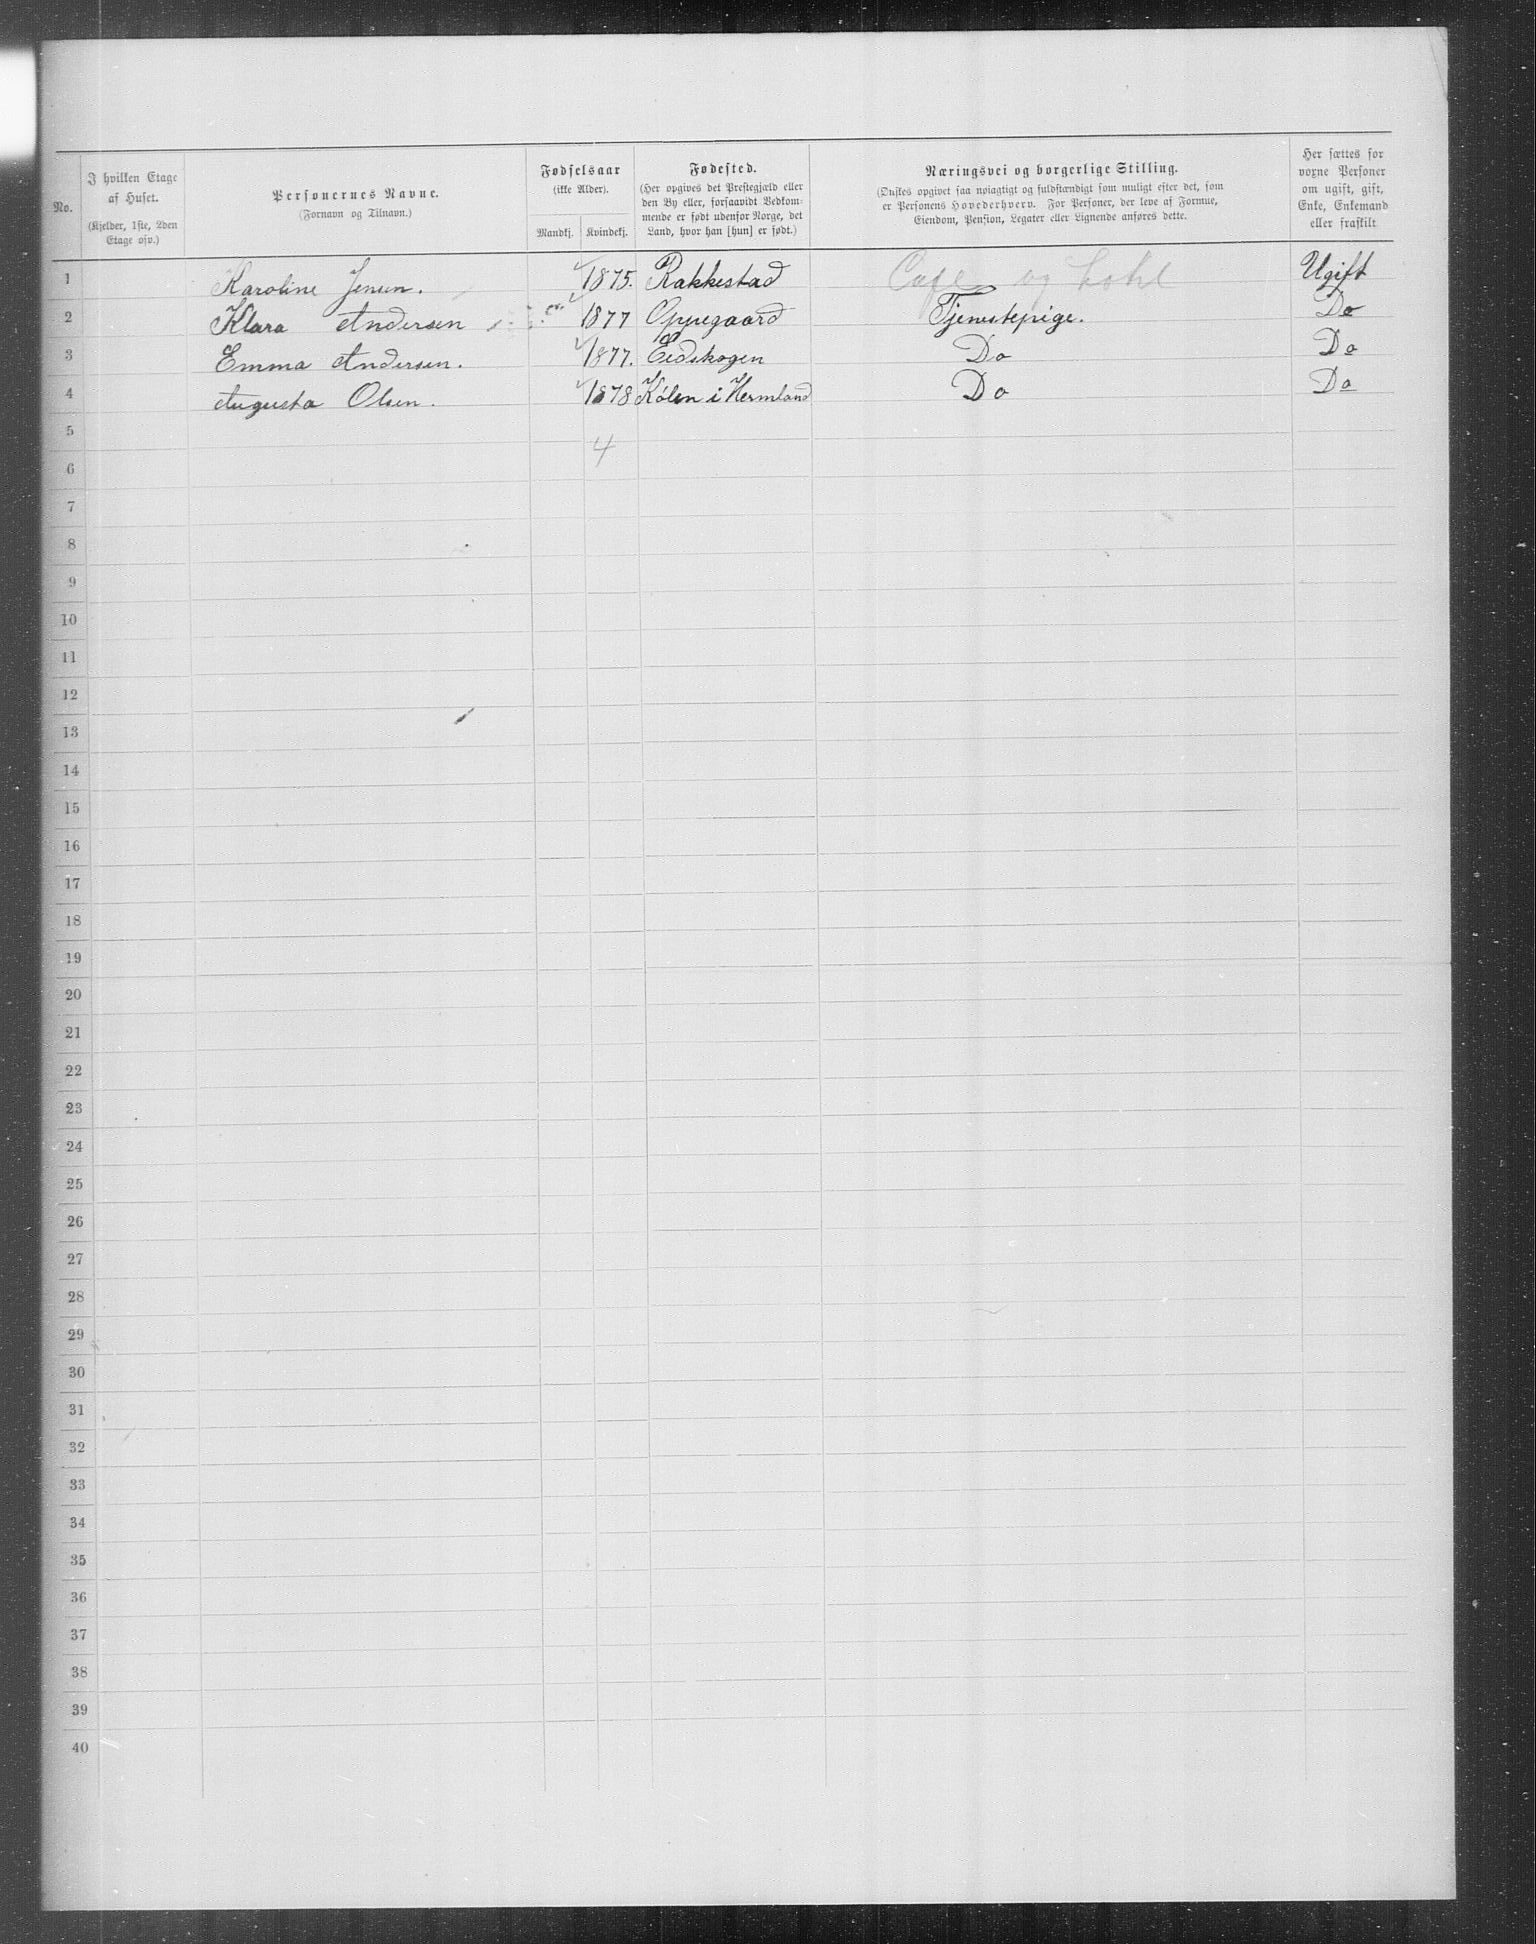 No.
I hvilken Etage af Huset.
(Kjelder, 1ste, 2den Etage osv.)
Personernes Navne.
(Fornavn og Tilnavn.)
Fødselsaar
(ikke Alder).
Mandkj. Kvindekj.
Fødested.
(Her opgives det Prestegjæld eller
den By eller, forsaavidt Vedkom-
mende er født udenfor Norge, det
Land, hvor han [hun] er født.)
Næringsvei og borgerlige Stilling.
(Ønskes opgivet saa nøiagtigt og fuldstændigt som muligt efter det, som
er Personens Hovederhverv. For Personer, der leve af Formue,
Eiendom, Pension, Legater eller Lignende anføres dette.
Her sættes for
voxne Personer
om ugift, gift,
Enke, Enkemand
eller fraskilt
1 Karoline Jensen. 1875. Rakkestad Cafe og Ugift
2 Klara Andersen 1877 Oppegaard Tjenestepige. Do
3 Emma Andersen. 1877. Eidskogen Do Do
4 Augusta Olsen. 1878 Kölen i Vermland Do Do
5
4
6
7
8
9
10
11
12
13
14
15
16
17
18
19
20
21
22
23
24
25
26
27
28
29
30
31
32
33
34
35
36
37
38
39
40